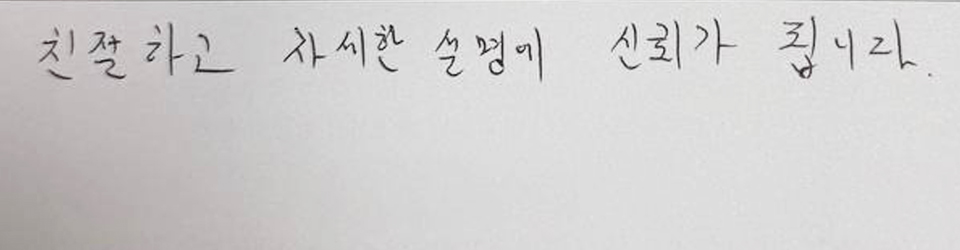 친절하고 자세한 설명에 신뢰가 됩니다.